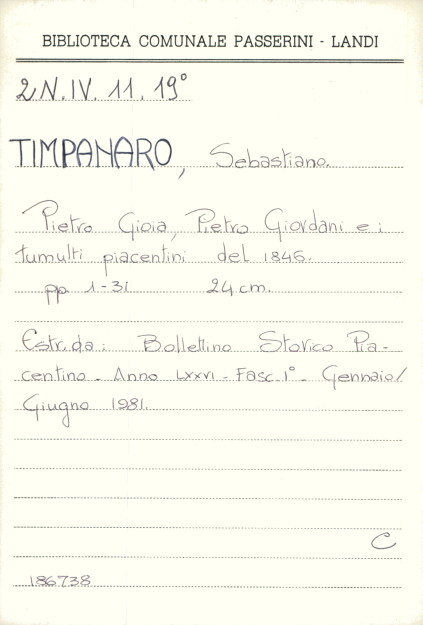 BIBLIOTECA COMUNALE PASSERINI - LANDI
2N.IV.11.19°
TIMPANARO, Sebastiano.
Pietro Gioia, Pietro Giordani e i
tumulti piacentini del 1846.
pp. 1-31 24 cm.
Estr. da: Bollettino Storico Pia-
centino - Anno LXXVI - Fasc. 1° - Gennaio/
Giugno 1981.
C
186738